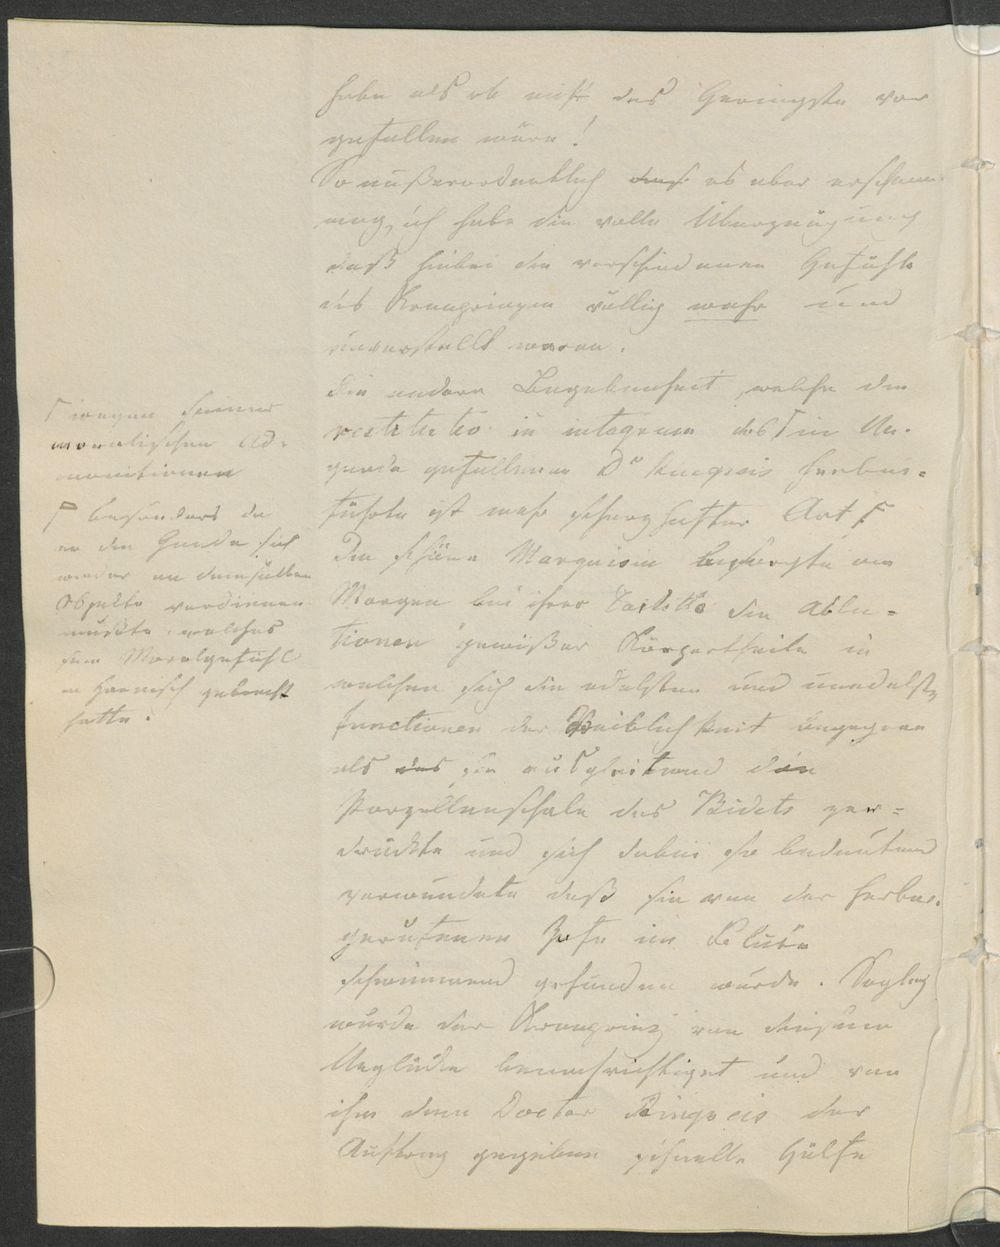 habe als ob nicht das Geringste vor
gefallen wäre!
So außerordentlich daß es aber erscheinen
mag, ich habe die volle Überzeugung
daß hiebei die verschiedenen Gefühle
des Kronprinzen völlig wahr und
unverstellt waren.
Die andere Begebenheit, welche die
restitutio in integrum des Γ in Un-
gnade gefallenen Dr Ringseis herbei=
führte ist mehr scherzhafter Art Γ
Die schöne Marquisin besorgte am
Morgen bei ihrer Toilette die Ablu=
tionen gewißer Körpertheile in
welchen sich die edelsten und unedelsten
functionen der Weiblichkeit begegnen
als das sie ausgleitend die
Porzellanschale des Bidets zer=
drückte und sich dabei so bedeutend
verwundete daß sie von der herbei-
gerufenen Zofe im Blute
schwimmend gefunden wurde. Sogleich
wurde der Kronprinz von diesem
Unglücke benachrichtiget und von
ihm dem Doctor Ringseis der
Auftrag gegeben schnelle Hülfe
Γ wegen seiner
moralischen Ad-
monitionen
Γ besonders da
er die Gnade sich
wieder an demselben
Objekte verdienen
mußte, welches
sein Moralgefühl
in Harnisch gebracht
hatte.